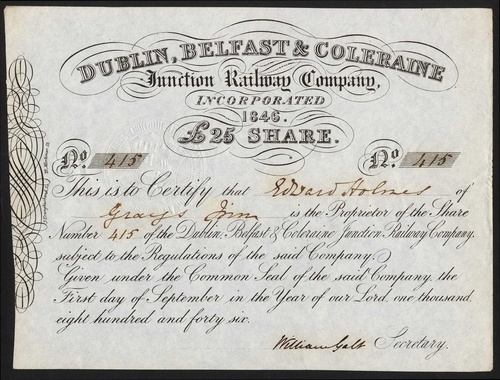 DUBLIN, BELFAST & COLERAINE
Junction Railway Company,
INCORPORATED
1846.
£25 SHARE.
No. 415 No. 415
This is to Certify that Edward Holmes of
Grays Inn is the Proprietor of the Share
Number 415 of the Dublin, Belfast & Coleraine Junction Railway Company,
subject to the Regulations of the said Company.
Given under the Common Seal of the said Company, the
First day of September in the Year of our Lord, one thousand
eight hundred and forty six.
William Galt Secretary.